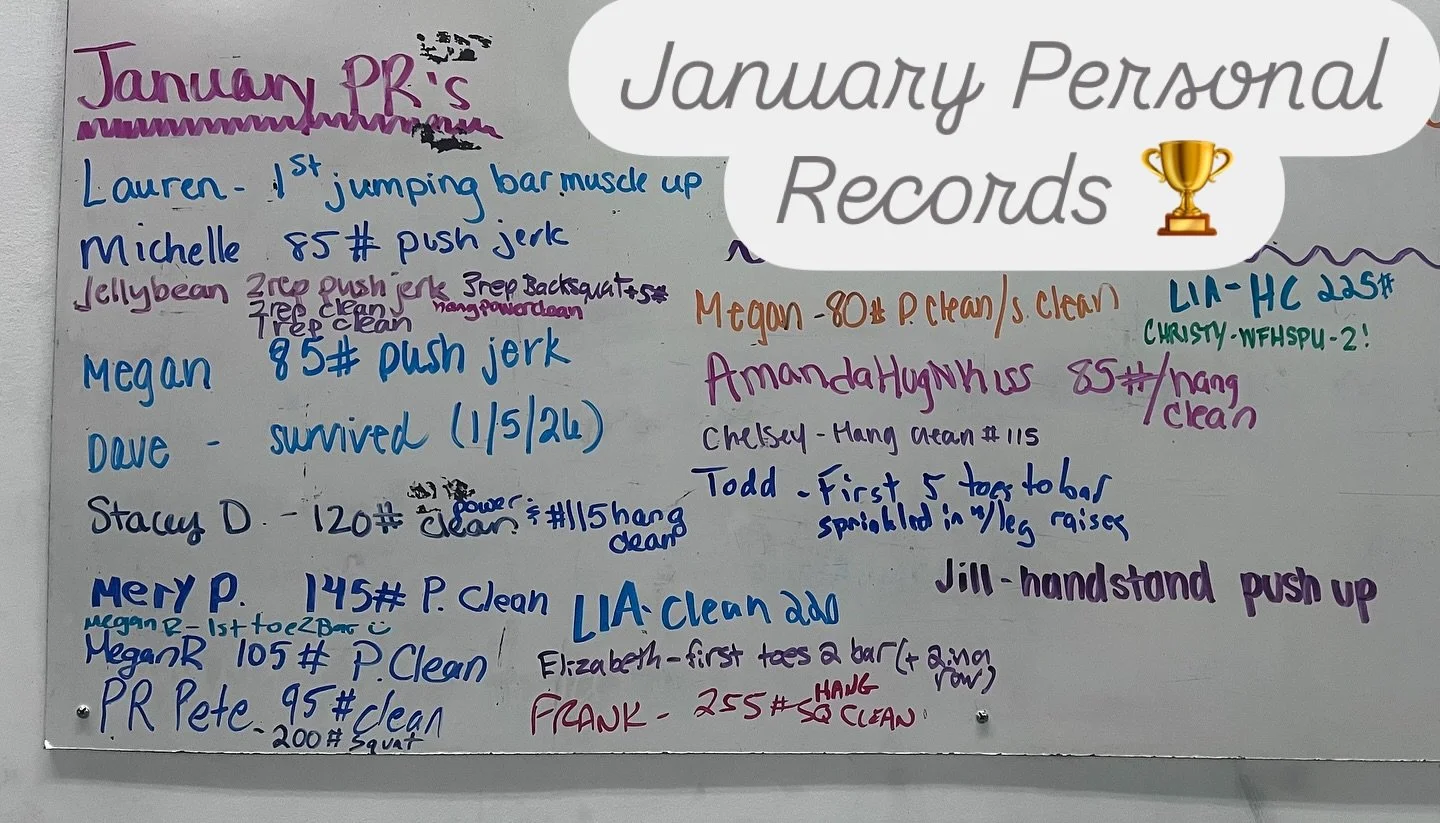 January PR's
January Personal
Records
Lauren - 1st jumping bar muscle up
Michelle 85# push jerk
Jellybean 2rep push jerk 3rep Backsquat +5#
2rep clean hang power clean
1 rep clean
Megan 85# push jerk
Dave - survived (1/5/26)
Stacey D. - 120# power clean & #115 hang
clean
Mery P. 145# P. Clean
Megan R - 1st toe2Bar
MeganR 105# P.Clean
PR Pete - 95# clean
200# squat
Megan - 80# P. clean/s. clean
LIA - HC 225#
CHRISTY - WFHSPU - 2!
AmandaHugNkiss 85#/hang
clean
Chelsey - Hang clean #115
Todd - First 5 toes to bar
sprinkled in w/leg raises
Jill - handstand push up
LIA - Clean 220
Elizabeth - first toes 2 bar (+ 2 in a
row)
FRANK - 255# HANG
SQ CLEAN